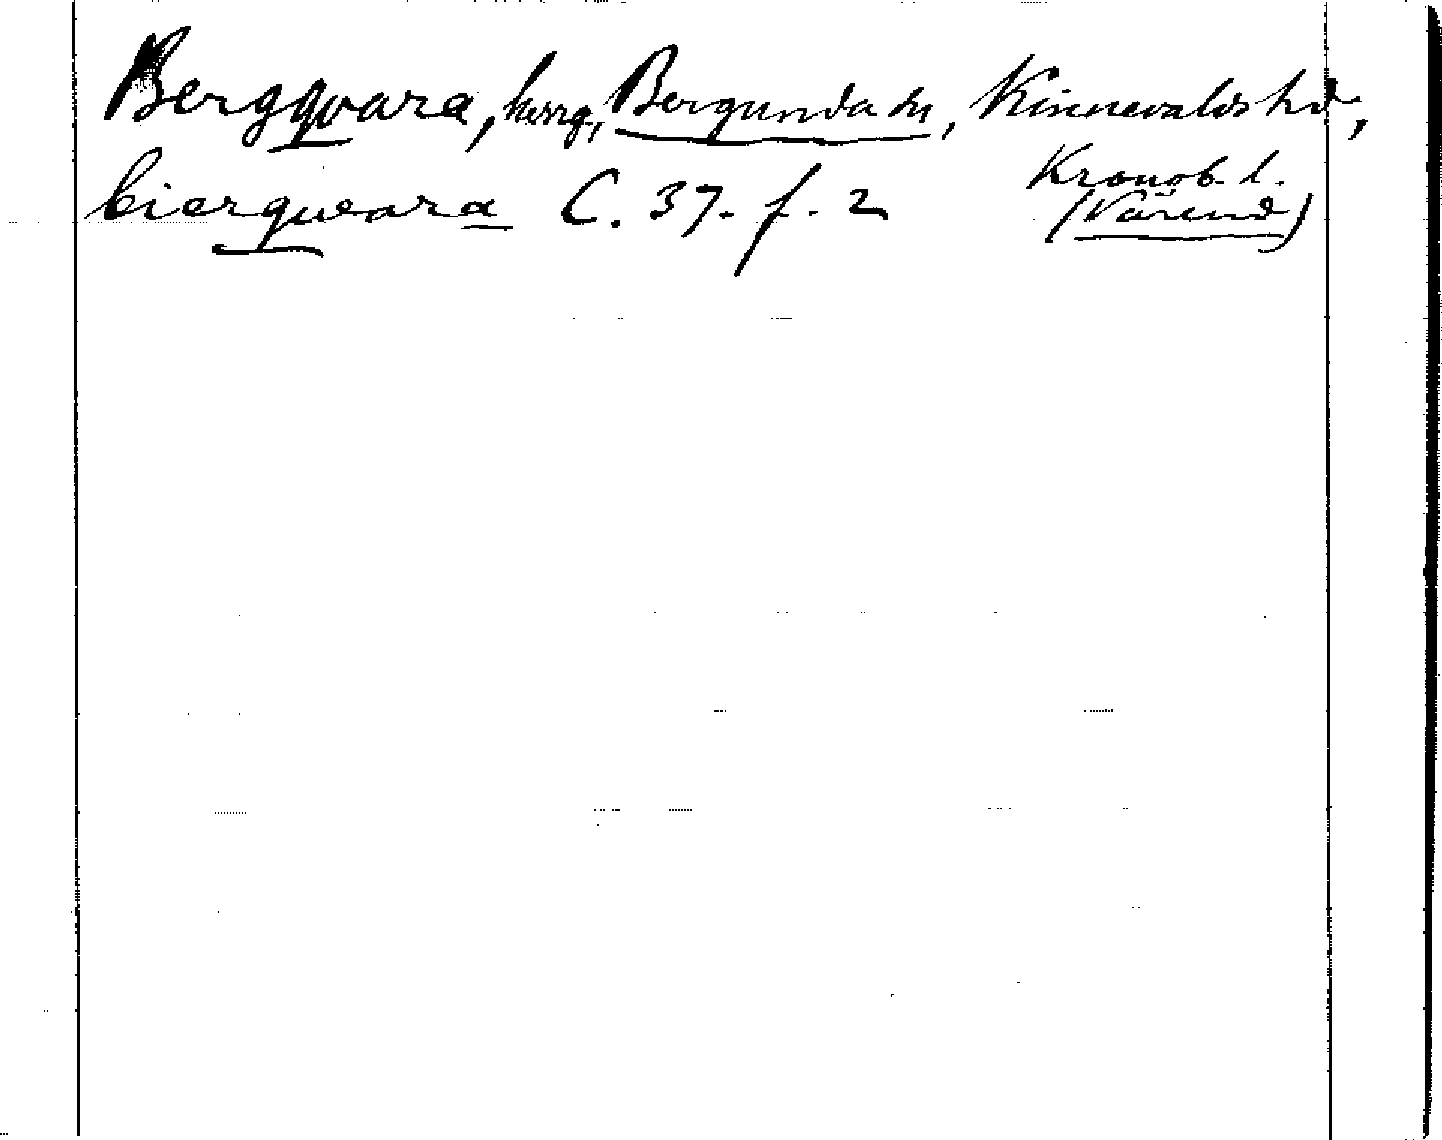 Bergqvara, herrg., Bergunda sn, Kinnevalds hd,
Kronob. l.
bierqwara C. 37. f. 2 (Värend)